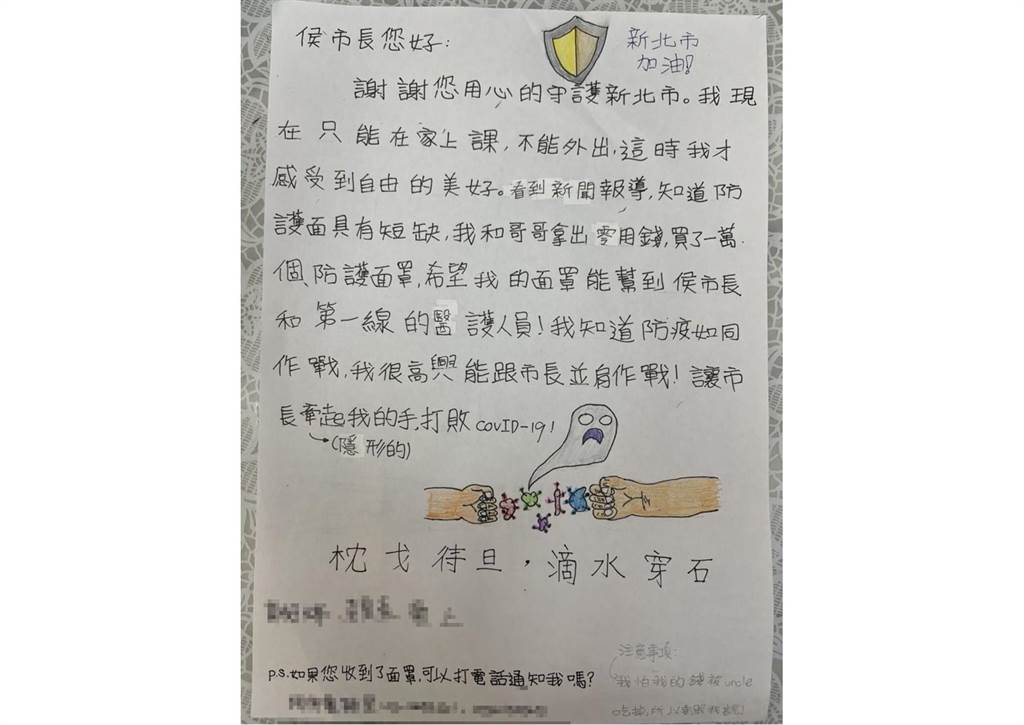 侯市長您好:
新北市
加油!
謝謝您用心的守護新北市。我現
在只能在家上課,不能外出,這時我才
感受到自由的美好。看到新聞報導,知道防
護面具有短缺,我和哥哥拿出零用錢,買了一萬
個防護面罩,希望我的面罩能幫到侯市長
和第一線的醫護人員!我知道防疫如同
作戰,我很高興能跟市長並肩作戰!讓市
長牽起我的手,打敗COVID-19!
(隱形的)
枕戈待旦,滴水穿石
上
p.s.如果您收到了面罩,可以打電話通知我嗎?
注意事項:
我怕我的錢被uncle
吃掉,所以